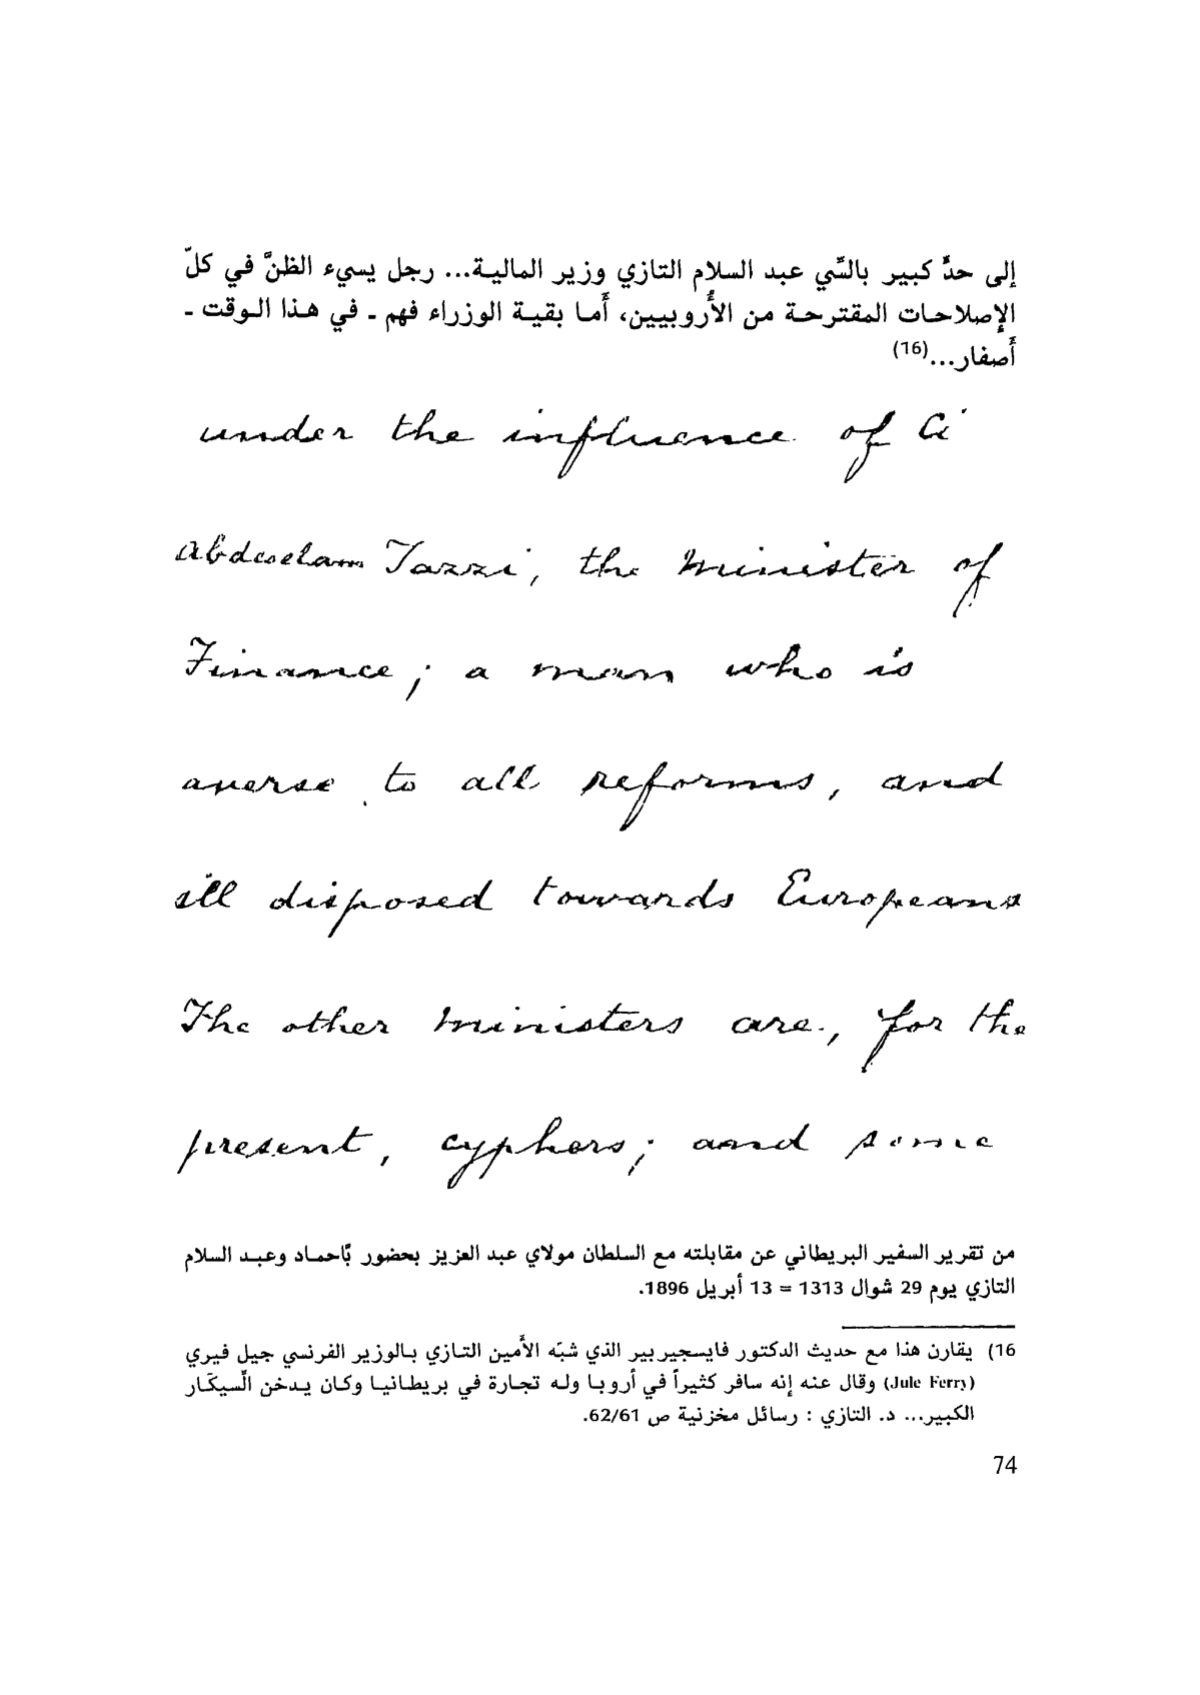 إلى حدٍّ كبير بالسِّي عبد السلام التازي وزير المالية... رجل يسيء الظنَّ في كلّ
الإصلاحات المقترحة من الأُروبيين، أَما بقية الوزراء فهم ـ في هذا الوقت ـ
أَصفار...(16)
under the influence of Ci
Abdeselam Tazzi, the Minister of
Finance; a man who is
averse to all reforms, and
ill disposed towards Europeans
The other ministers are, for the
present, cyphers; and some
من تقرير السفير البريطاني عن مقابلته مع السلطان مولاي عبد العزيز بحضور بَّاحماد وعبد السلام
التازي يوم 29 شوال 1313 = 13 أبريل 1896.
16) يقارن هذا مع حديث الدكتور فايسجيربير الذي شبّه الأَمين التازي بالوزير الفرنسي جيل فيري
(Jule Ferry) وقال عنه إنه سافر كثيراً في أروبا وله تجارة في بريطانيا وكان يدخن الّسيكَار
الكبير... د. التازي : رسائل مخزنية ص 62/61.
74